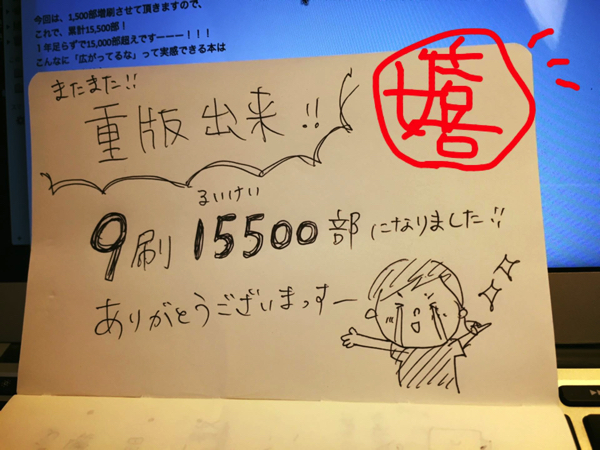 今回は、1,500部増刷させて頂きますので、
これで、累計15,500部！
１年足らずで15,000部超えですーーー！！！
こんなに「広がってるな」って実感できる本は
またまた!!
重版出来!!
嬉
るいけい
9刷 15500部になりました!!
ありがとうございまっすー